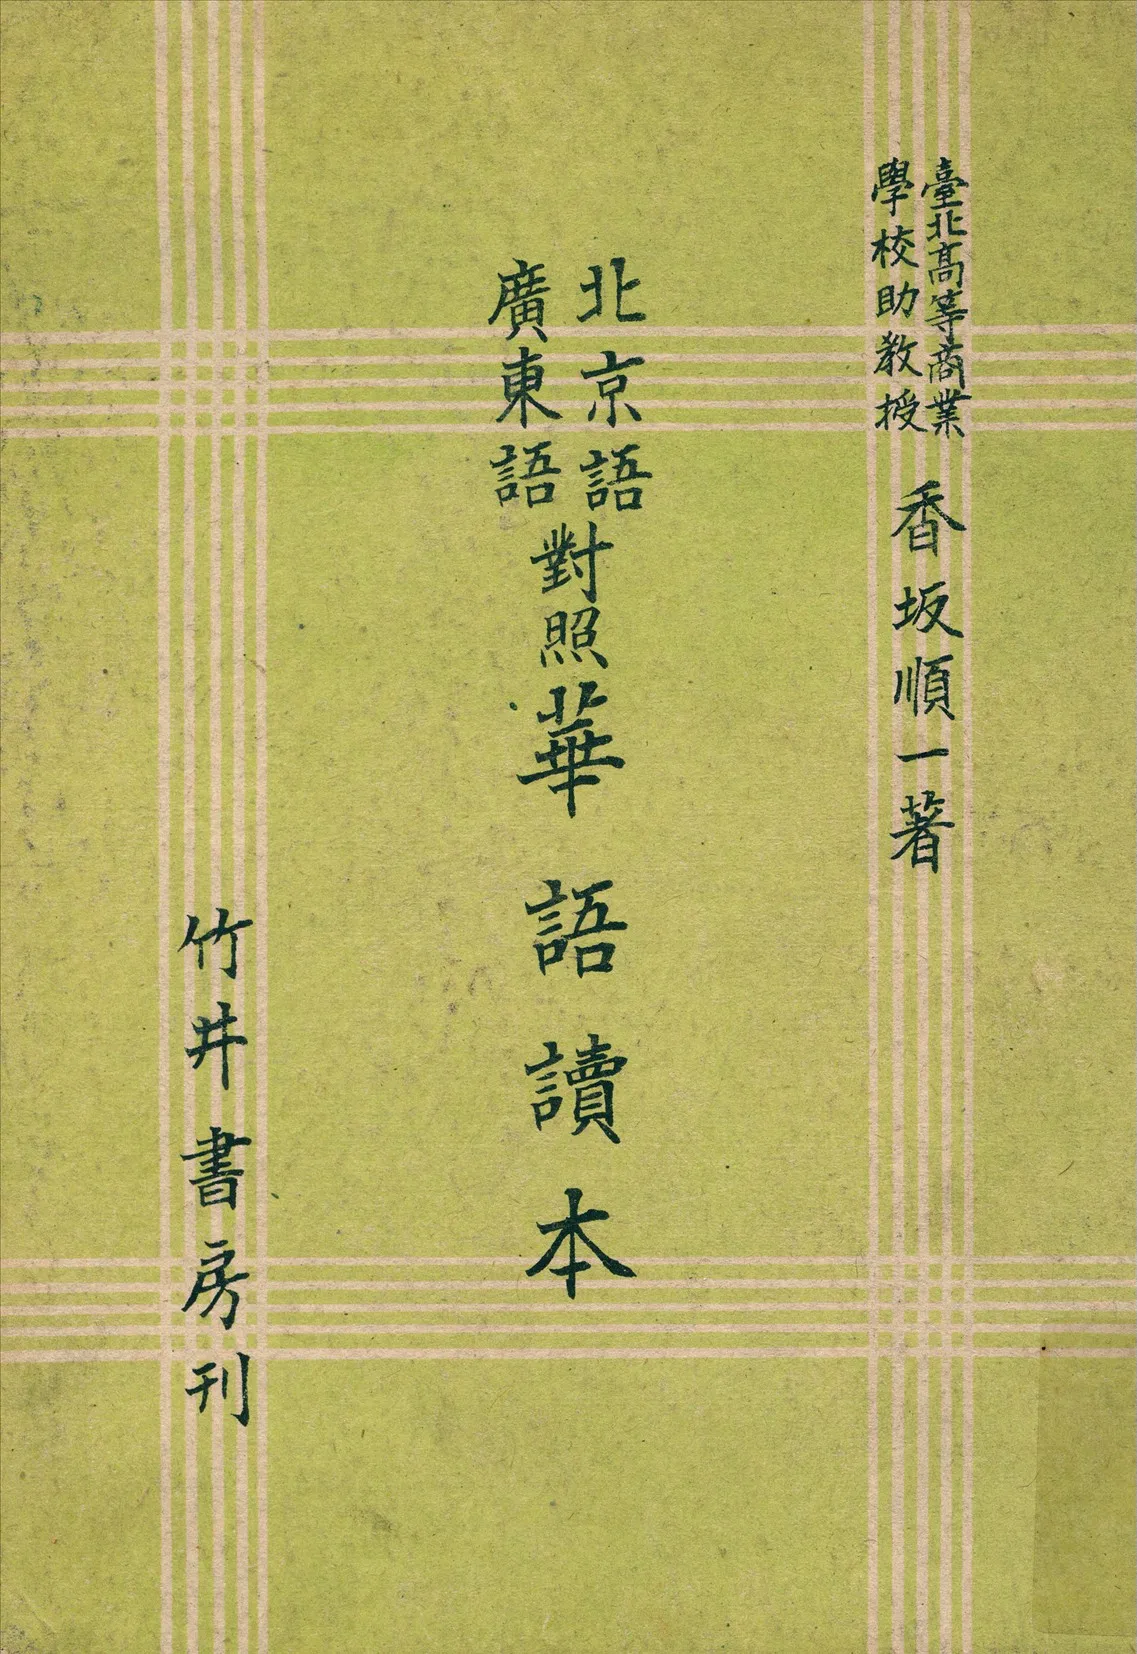 臺北高等商業
學校助教授
香坂順一著
北京語
廣東語
對照
華語讀本
竹井書房刊